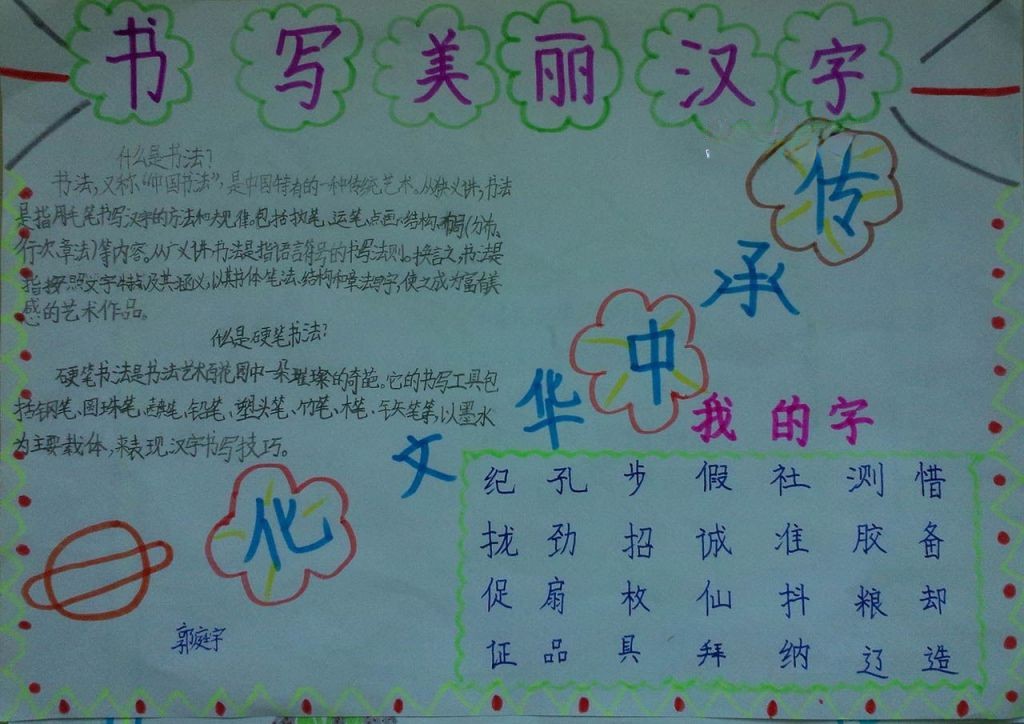 书写美丽汉字
什么是书法?
书法,又称“中国书法”,是中国特有的一种传统艺术。从狭义讲,书法
是指用毛笔书写汉字的方法和规律。包括执笔、运笔、点画、结构、布局(分布、
行次、章法)等内容。从广义讲,书法是指语言符号的书写法则。换言之,书法是
指按照文字特点及其涵义,以其书体笔法、结构和章法写字,使之成为富有美
感的艺术作品。
什么是硬笔书法?
硬笔书法是书法艺术百花园中一朵璀璨的奇葩。它的书写工具包
括钢笔、圆珠笔、笔、铅笔、塑头笔、竹笔、木笔、笔等,以墨水
为主要载体,来表现汉字书写技巧。
传承中华文化
我的字
纪 孔 步 假 社 测 惜
拢 劲 招 诚 准 胶 备
促 扇 枚 仙 抖 粮 却
证 品 具 拜 纳 辽 造
郭庭宇